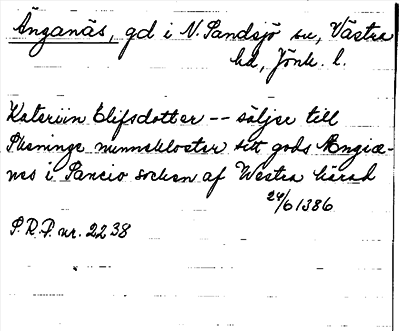 Änganäs, gd i N. Sandsjö sn, Västra
hd, Jönk. l.
Kateriin Elifsdotter -- säljer till
nunnekloster sitt gods Ængiæ-
nes i Sancio socken af Westra härad
24/6 1386
S.R.P. nr. 2238